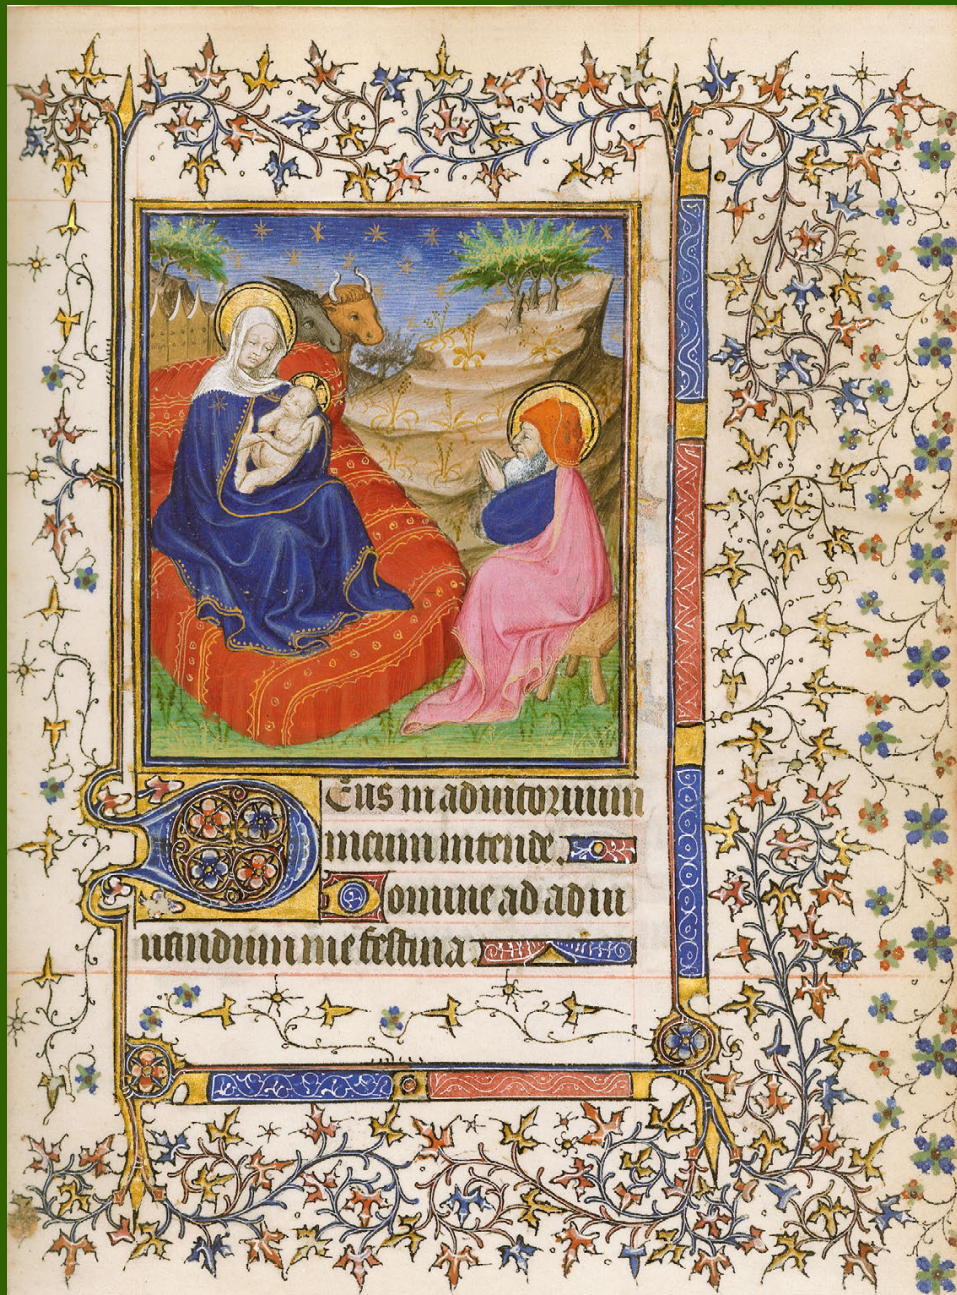 Deus in adiutorium
meum intende.
Domine ad adiu
uandum me festina